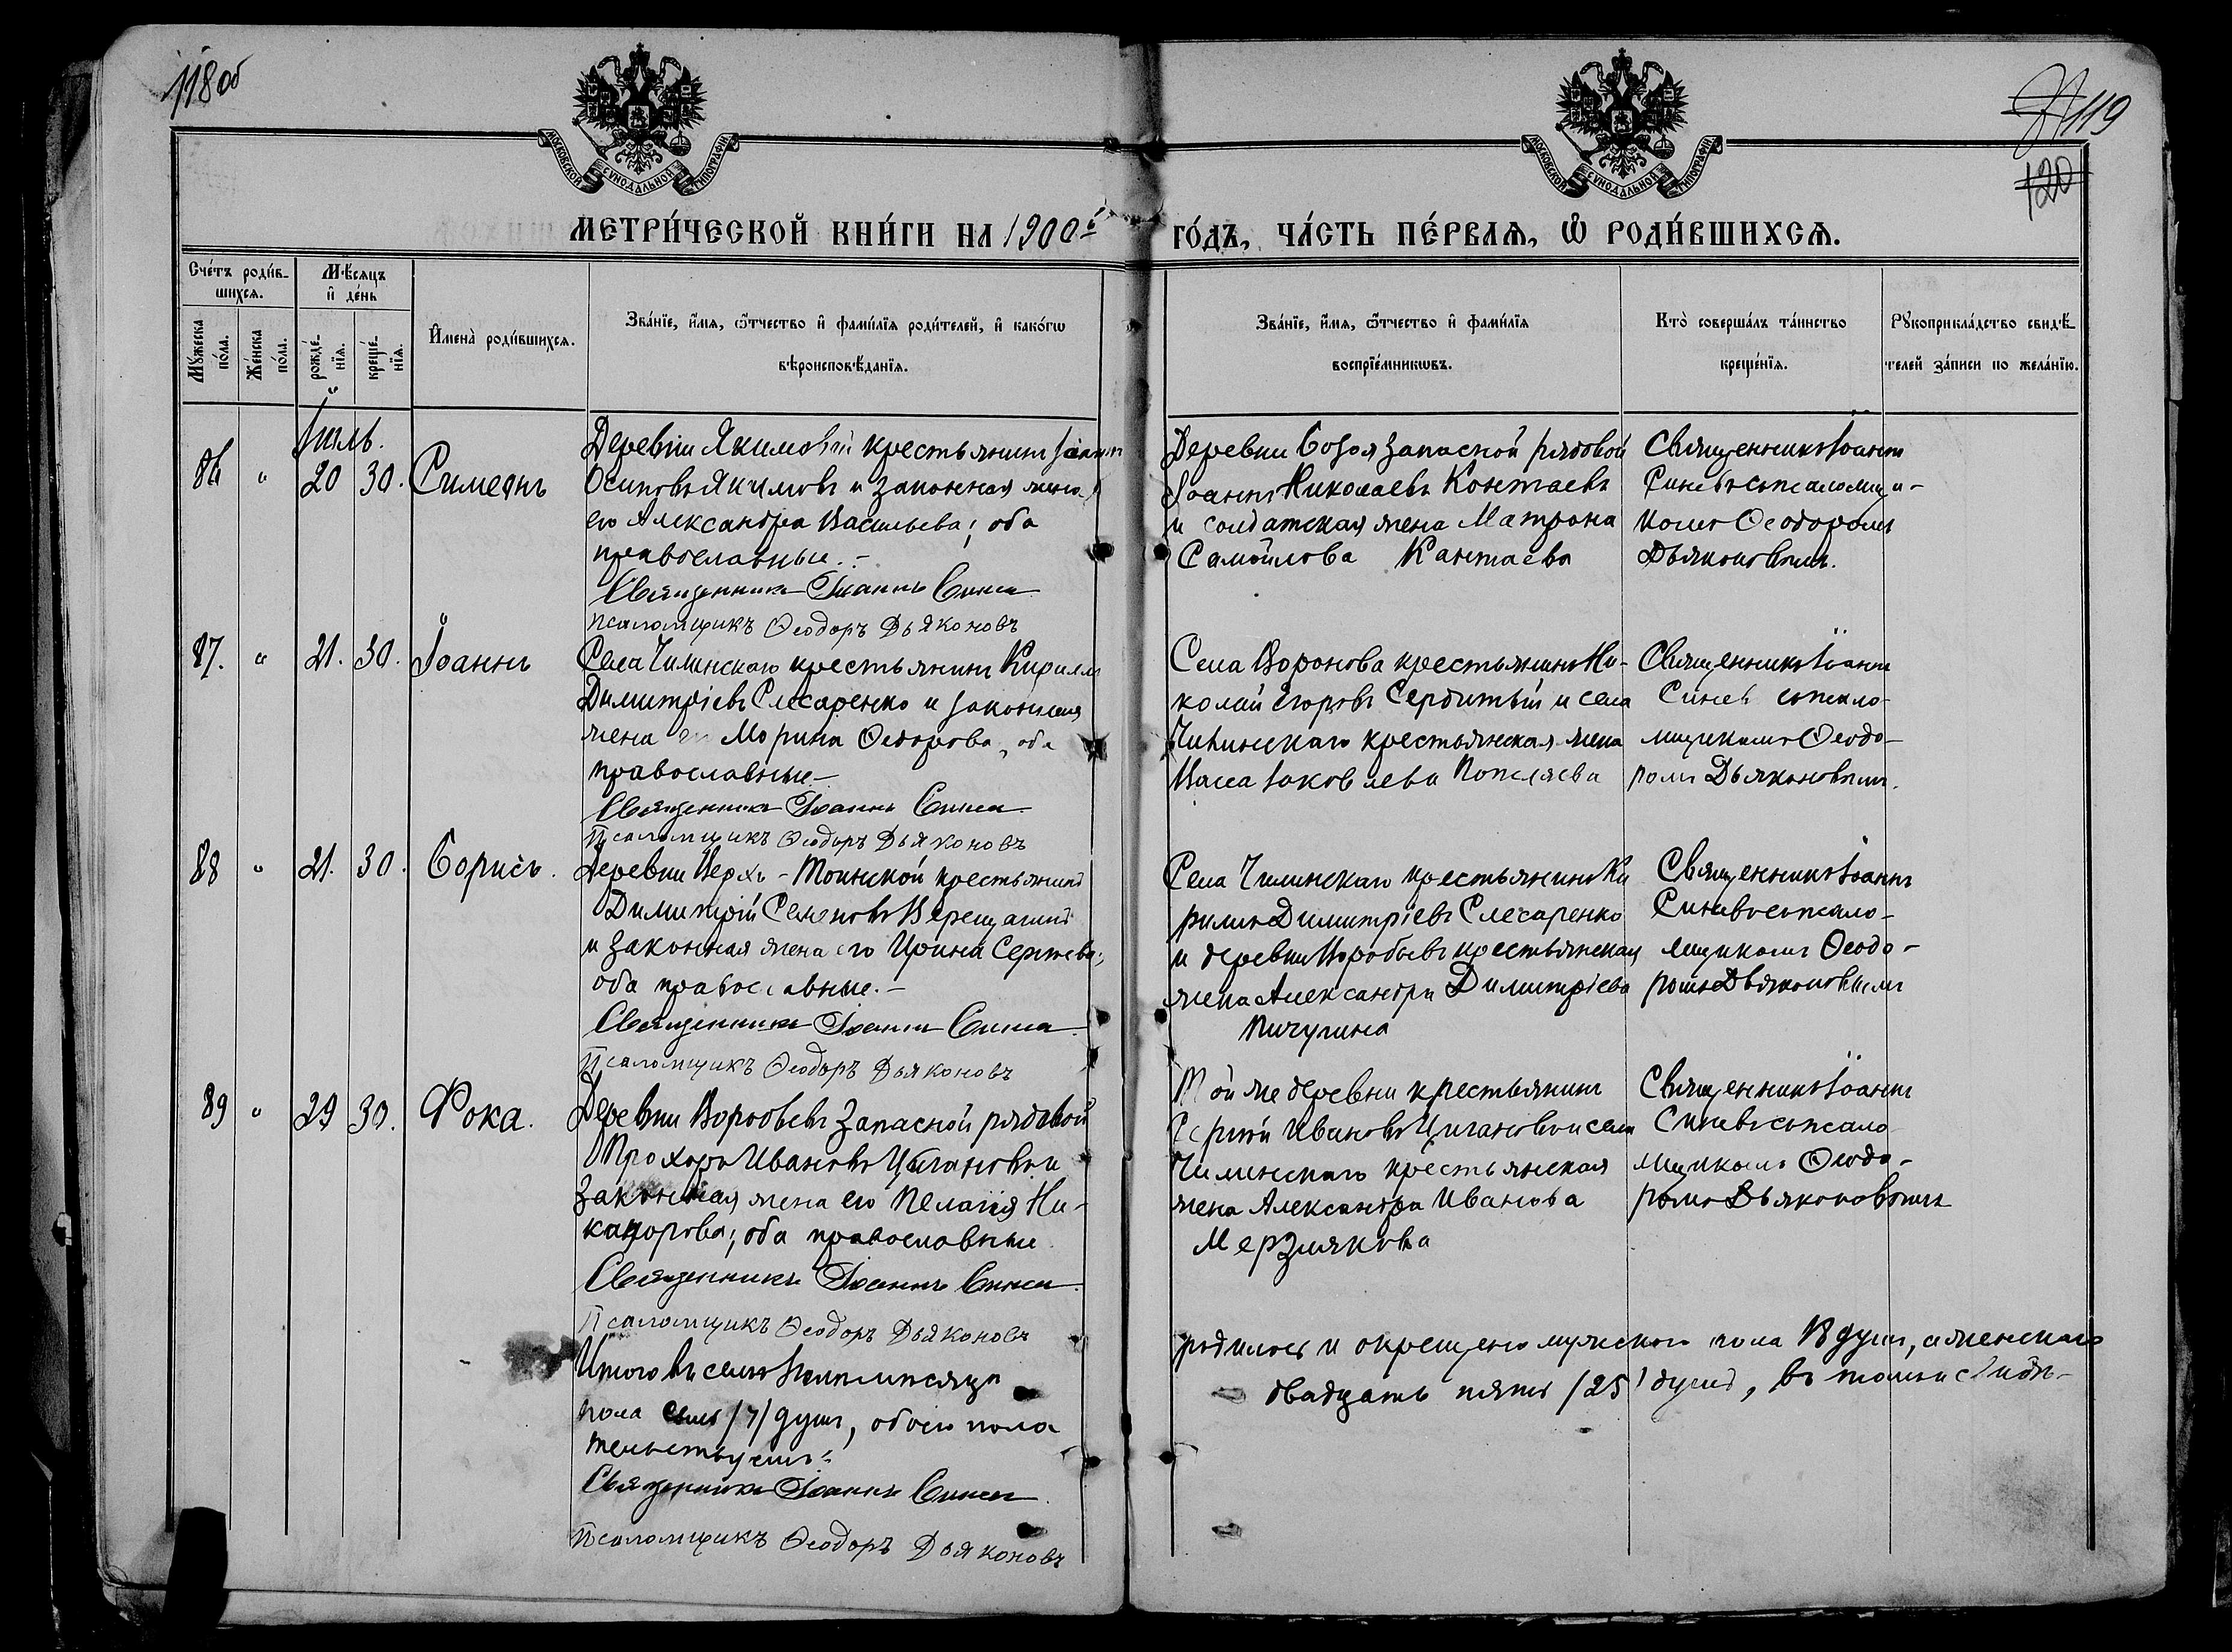 118 об
119
120
МОСКОВСКОЙ СѴНОДАЛЬНОЙ ТИПОГРАФІИ
МОСКОВСКОЙ СѴНОДАЛЬНОЙ ТИПОГРАФІИ
МЕТРИ́ЧЕСКОЙ КНИ́ГИ НА 1900й
ГО́ДЪ, ЧА́СТЬ ПЕ́РВАѦ, Ѡ҆ РОДИ́ВШИХСѦ.
Сче́тъ роди́в-
шихсѧ.
Мѣ́сѧцъ
и҆ де́нь
Мꙋ́жеска
по́ла.
Же́нска
по́ла.
рожде́-
нїѧ.
креще́-
нїѧ.
И҆мена̀ роди́вшихсѧ.
Зва́нїе, и҆́мѧ, ѻ҆́тчество и҆ фамѝлїѧ роди́телей, и҆ како́гѡ
вѣроисповѣ́данїѧ.
Зва́нїе, и҆́мѧ, ѻ҆́тчество и҆ фами́лїѧ
воспрїе́мникѡвъ.
Кто̀ соверша́лъ та́инство
креще́нїѧ.
Рꙋкоприкла́дство свидѣ́-
телей за́писи по жела́нїю.
Іюль.
86 " 20 30. Симеонъ
Деревни Якимовой крестьянинъ Іоаннъ
Осиповъ Якимовъ и законная жена
его Александра Васильева; оба
православные.-
Священникъ Іоаннъ Синев
Псаломщикъ Ѳеодоръ Дьяконовъ
Деревни запасной рядовой
Іоаннъ Николаевъ Контаевъ
и солдатская жена Матрона
Самойлова Кантаева
Священникъ Іоаннъ
Синевъ съ псаломщи-
комъ Ѳеодоромъ
Дьяконовымъ.
87. " 21. 30. Іоаннъ
Села Чилинскаго крестьянинъ Кириллъ
Димитріевъ Слесаренко и законная
жена его Марина Ѳеодорова, оба
православные-
Священникъ Іоаннъ Синев
Псаломщикъ Ѳеодоръ Дьяконовъ
Села Воронова крестьянинъ Ни-
колай Егоровъ Сердитый и села
Чилинскаго крестьянская жена
Васса Іаковлева
Священникъ Іоаннъ
Синевъ съ псало-
мщикомъ Ѳеодо-
ромъ Дьяконовымъ.
88 " 21. 30. Борисъ.
Деревни Верхъ-Тоинской крестьянинъ
Димитрій Семеновъ Верещагинъ
и законная жена его Ирина Сергеева;
оба православные.-
Священникъ Іоаннъ Синев
Псаломщикъ Ѳеодоръ Дьяконовъ
Села Чилинскаго крестьянинъ Ки
риллъ Димитріевъ Слесаренко
и деревни Воробьевъ крестьянская
жена Александра Димитріева
Пичугина
Священникъ Іоаннъ
Синевъ съ псало-
мщикомъ Ѳеодо-
ромъ Дьяконовымъ
89 " 29 30. Фока.
Деревни Воробьевъ запасной рядовой
Прохоръ Ивановъ Цыгановъ и
законная жена его Пелагія Ни-
канорова; оба православные
Священникъ Іоаннъ Синев
Псаломщикъ Ѳеодоръ Дьяконовъ
Той же деревни крестьянинъ
Сергій Ивановъ Цыгановъ и села
Чилинскаго крестьянская
жена Александра Иванова
Мерзлякова
Священникъ Іоаннъ
Синевъ съ псало
мщикомъ Ѳеодо-
ромъ Дьяконовымъ
Итого въ семъ Іюлѣ мѣсяцѣ
родилось и окрещено мужскаго пола 18 душъ, а женскаго
пола семь /7/ душъ, обоего пола
двадцать пять /25/ душъ, въ томъ и свидѣ-
тельствуемъ:
Священникъ Іоаннъ Синев
Псаломщикъ Ѳеодоръ Дьяконовъ